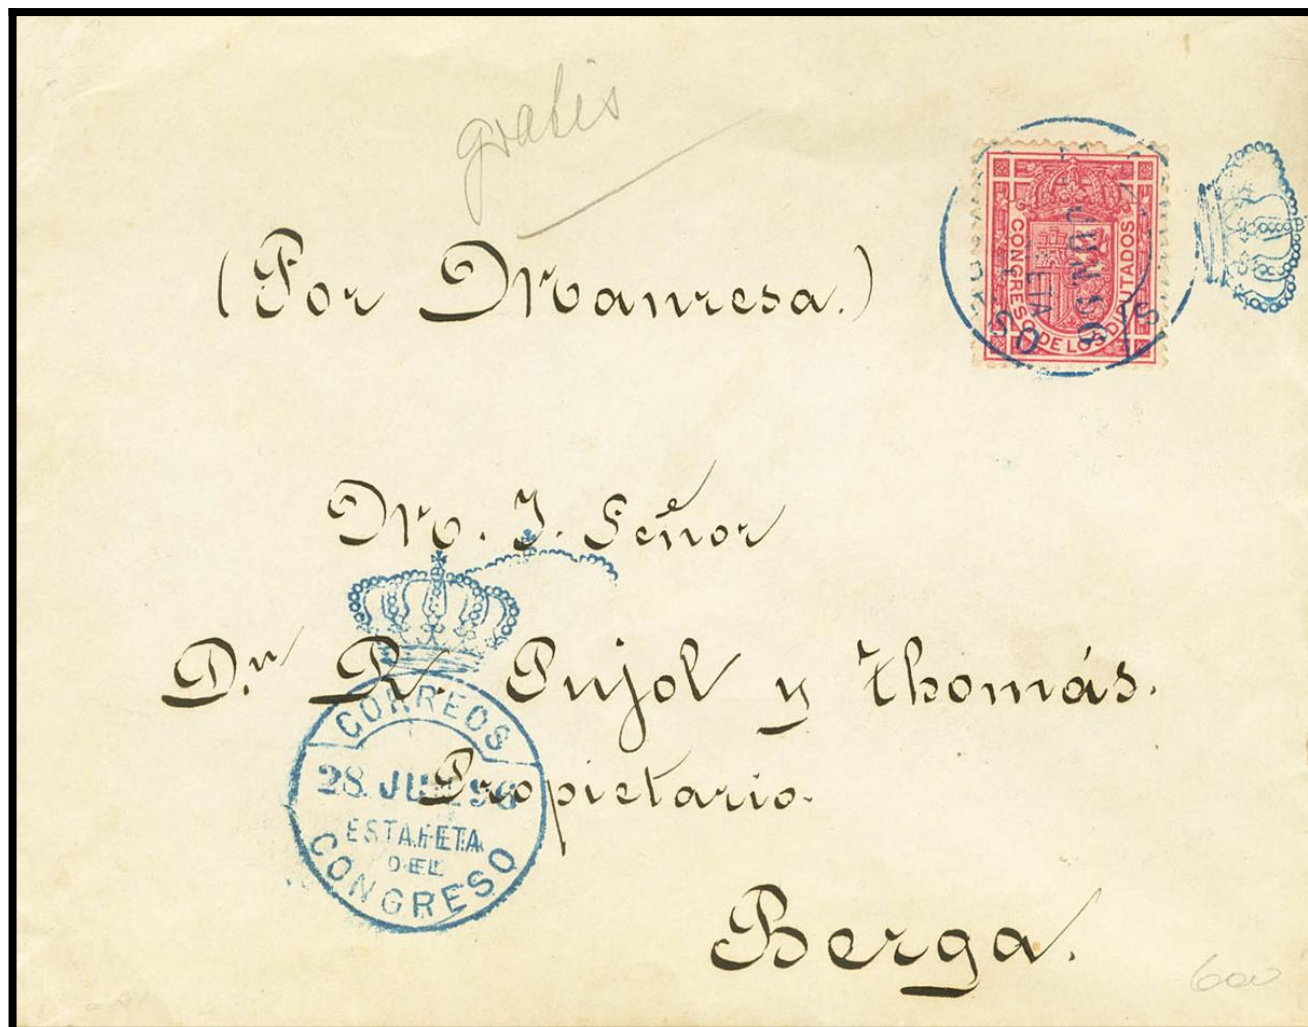 gratis
(Por Manresa.)
CONGRESO DE LOS DIPUTADOS
JUN 96
M. I. Señor
Dn R. Pujol y Thomás.
Propietario.
Berga.
CORREOS
28. JUN 96
ESTAFETA
DEL
CONGRESO
600